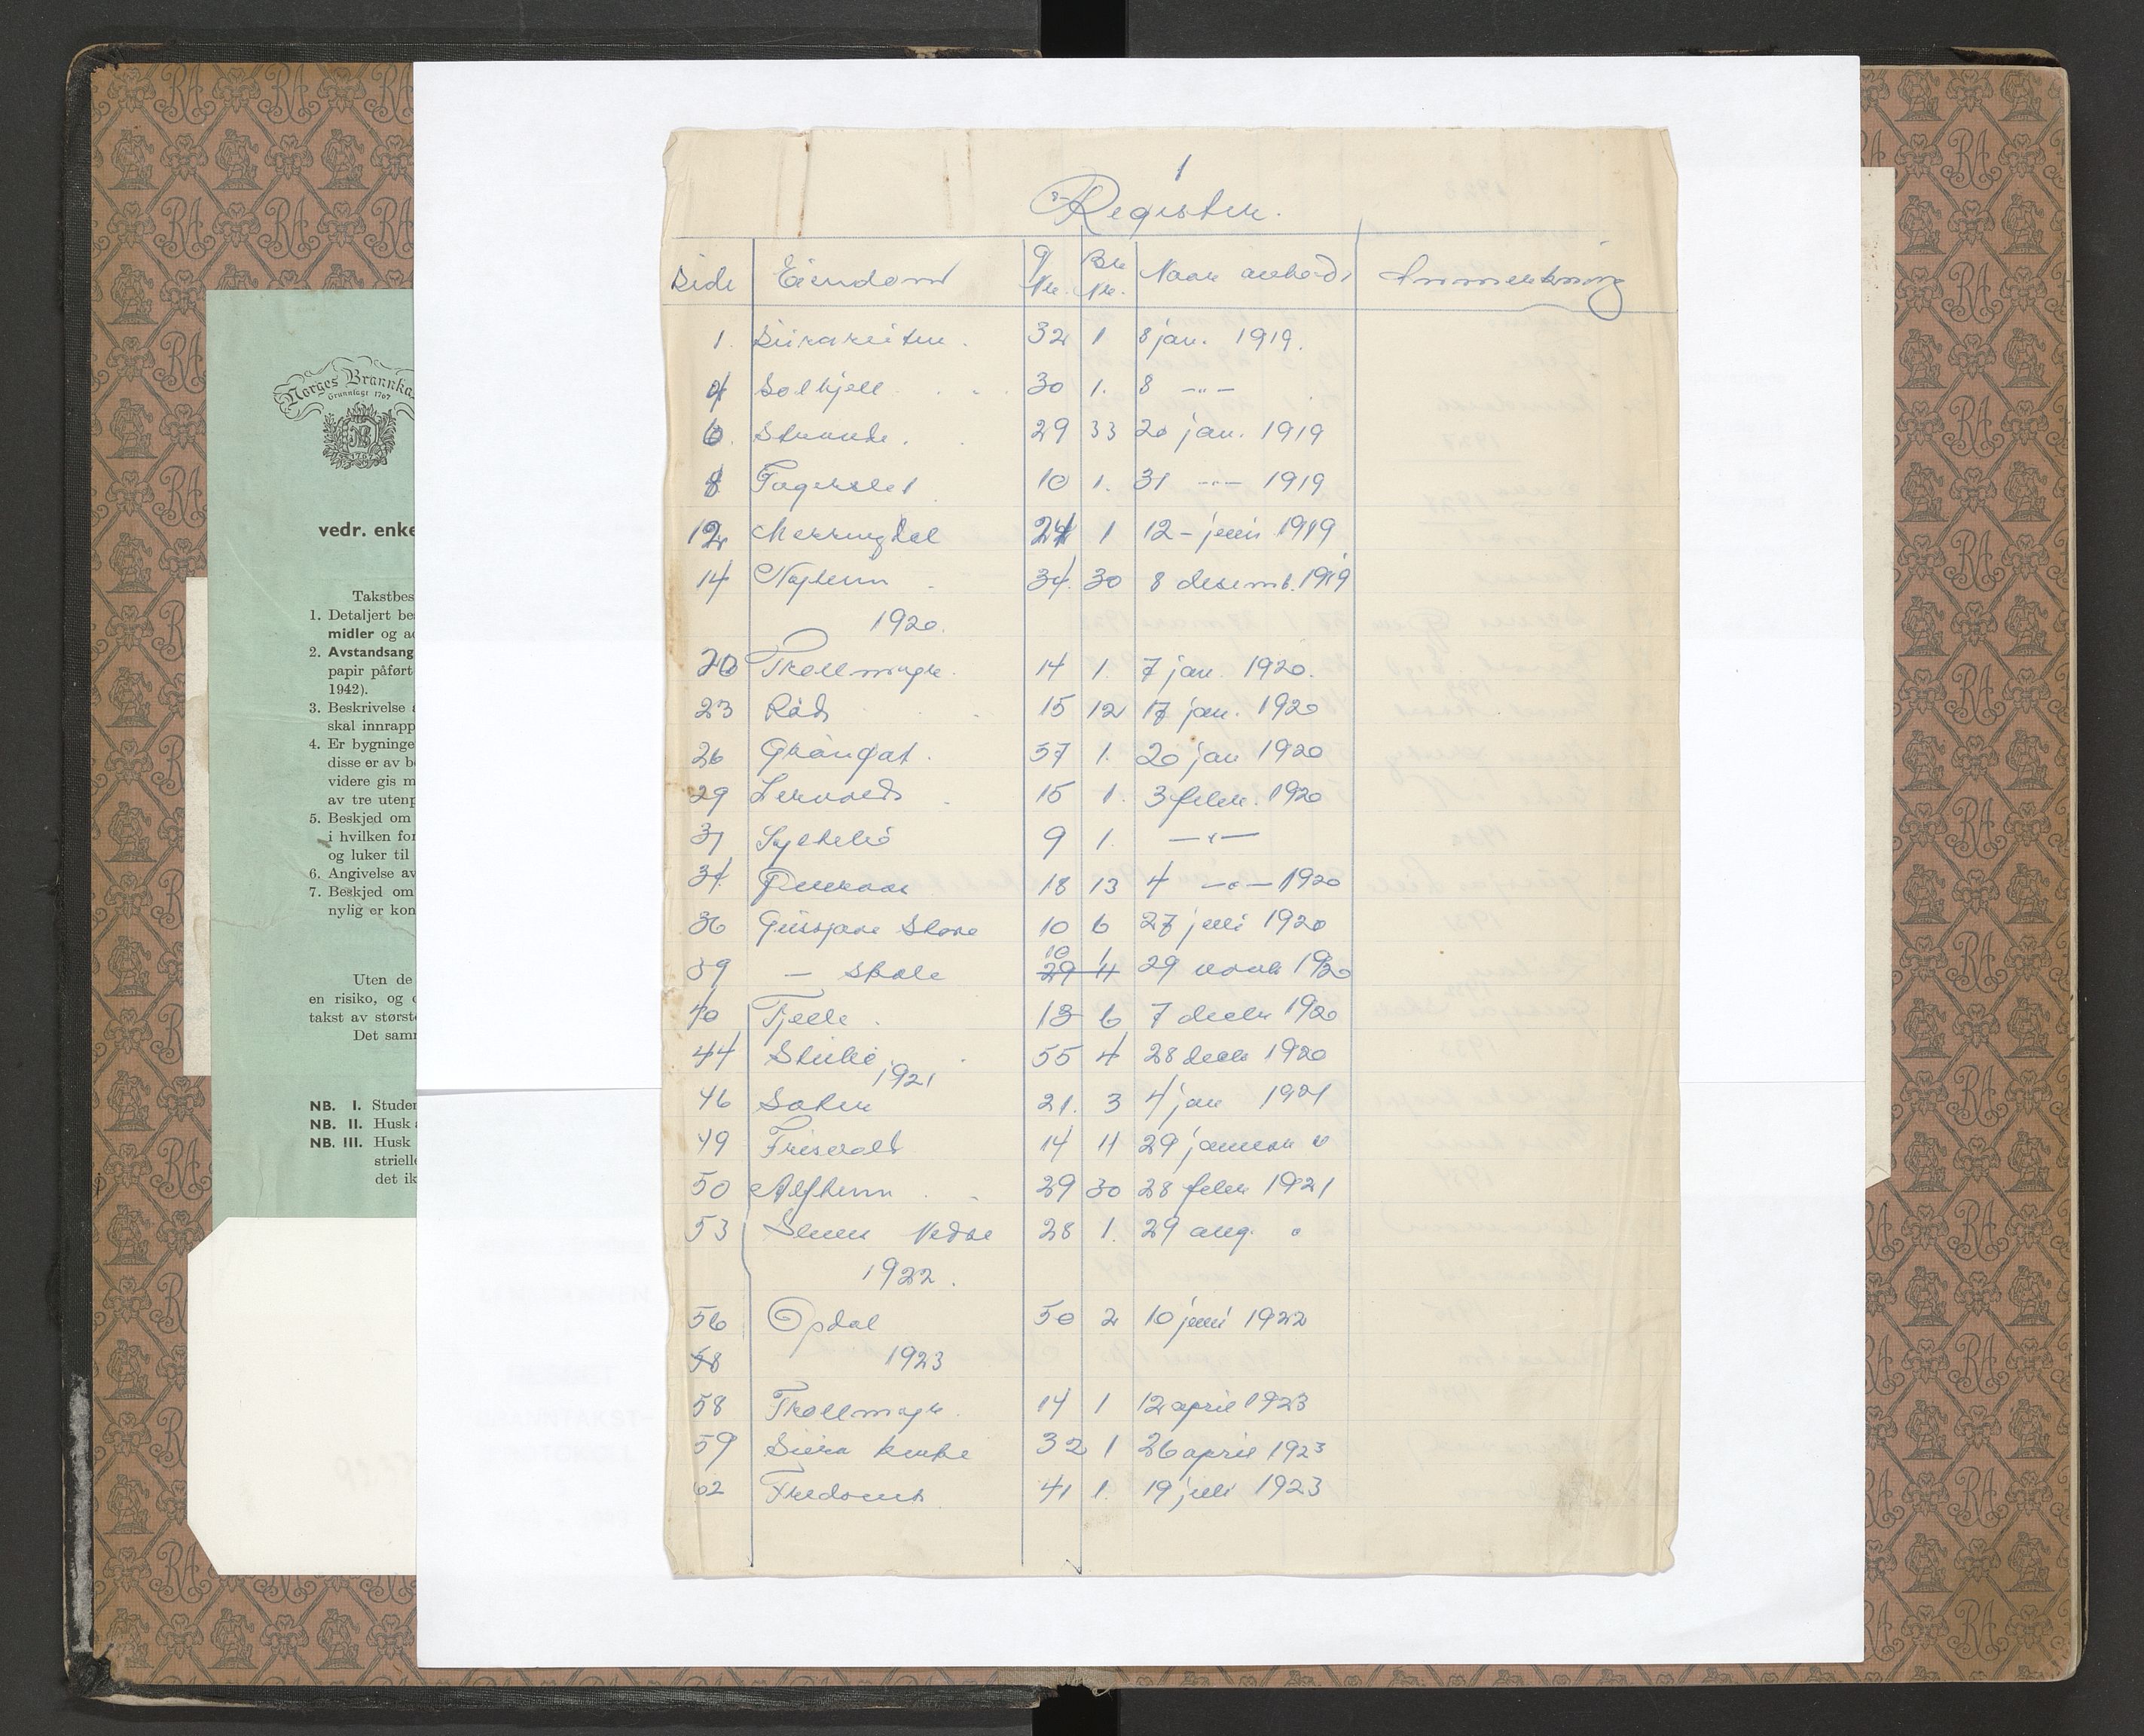 Norges Brannka
Grunnlagt 1767
vedr. enke
Takstbes
1. Detaljert be
midler og a
2. Avstandsang
papir påført
1942).
3. Beskrivelse
skal innrapp
4. Er bygninge
disse er av b
videre gis m
av tre utenp
5. Beskjed om
i hvilken for
og luker til
6. Angivelse av
7. Beskjed om
nylig er kon
Uten de
en risiko, og
takst av størst
Det samm
NB. I. Studer
NB. II. Husk
NB. III. Husk
strielle
det ik
1
Register.
Side Eiendom G Nr. Br Nr. Naar avholdt Anmerkning
1. Siiraveiten. 32 1 8 jan. 1919.
4 Solhjell 30 1. 8 -"-
6. Strande. 29 33 20 jan. 1919
8 Fagerslet 10 1. 31 -"- 1919
12 Merringdal 24 1 12 - juni 1919
14 Nyheim 34. 30 8 desemb. 1919
1920.
20 Trollmyre. 14 1. 7 jan. 1920.
23 Röds 15 12 17 jan. 1920
26 Gröngat. 57 1. 20 jan 1920
29 Lervold 15 1. 3 febr. 1920
31 9 1. -"-
34. 18 13 4 -"- 1920
36 Gussjare Skore 10 6 27 juli 1920
39 - skole 10 1 29 11 29 novb 1920
40 Tjelle. 13 6 7 decbr 1920
44 55 4 28 decb 1920
1921
46 Soter 21. 3 4 jan 1921
49 Frisvold 14 11 29 januar "
50 Alfheim 29 30 28 febr 1921
53 Nedre 28 1. 29 aug. "
1922.
56 Opdal 50 2 10 juni 1922
58 1923
58 Trollmyr. 14 1 12 april 1923
59 Siira kirke 32 1 26 april 1923
62 41 1. 19 juli 1923